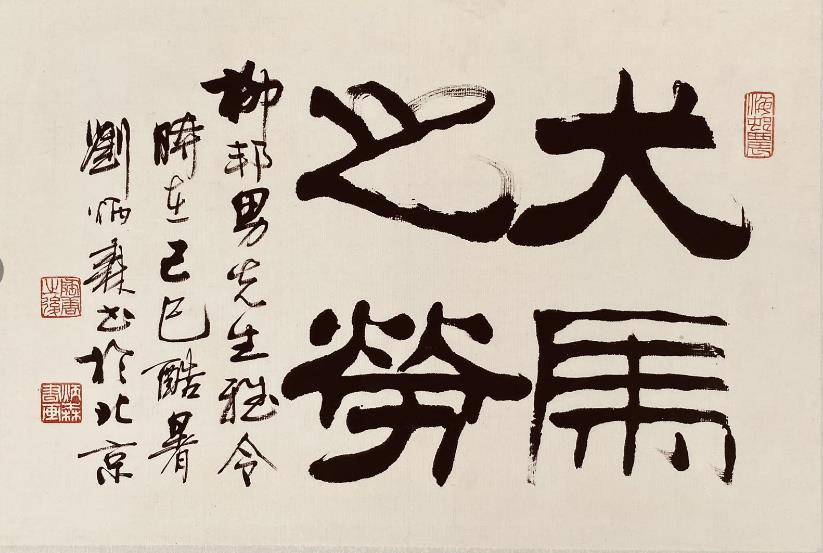 犬馬
之勞
柳邦男先生雅令
時在己巳酷暑
劉炳森書於北京